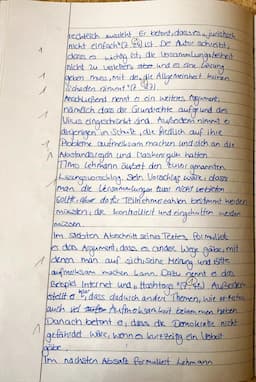 rechtlich ausdehnt. Er betont, dass es „juristisch
nicht einfach" (Z. ) ist. Der Autor schreibt,
dass es wichtig ist, die Versammlungsfreiheit
nicht zu verletzen, aber und es eine Lösung
geben muss, mit der die Allgemeinheit keinen
Schaden nimmt" (Z. )
Anschließend nennt er ein weiteres Argument,
nämlich dass die Grundrechte aufgrund des
Virus eingeschränkt sind. Außerdem nimmt er
diejenigen in Schutz, die friedlich auf ihre
Probleme aufmerksam machen und sich an die
Abstandsregeln und Maskenregeln halten.
Timo Lehmann äußert den einen
Lösungsvorschlag. Sein Vorschlag wäre, dass
man die Versammlungen zwar nicht verbieten
sollte, aber dafür Teilnehmerzahlen bestimmt werden
müssten, die kontrolliert und eingehalten werden
müssen.
Im siebten Abschnitt seines Textes, formuliert
er das Argument, dass es andere Wege gäbe, mit
denen man auf sich/seine Meinung und
aufmerksam machen kann. Dazu nennt er das
Beispiel Internet und „Hashtags" (Z. ). Außerdem
stellt er klar, dass dadurch andere Themen, wie
auch viel Aufmerksamkeit bekommen haben.
Danach betont er, dass die Demokratie nicht
gefährdet wäre, wenn es kurzzeitig ein Verbot
gäbe.
Im nächsten Absatz formuliert Lehmann